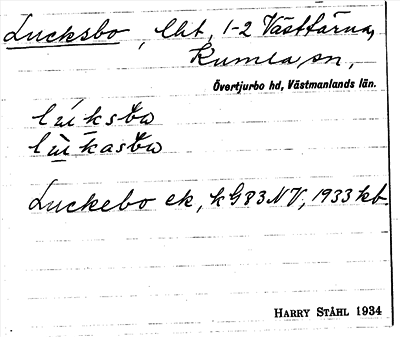 Lucksbo, lht, 1-2 Västtärna,
Kumla sn,
Övertjurbo hd, Västmanlands län.
Luckebo ek, k G83 NV, 1933 kb.
HARRY STÅHL 1934